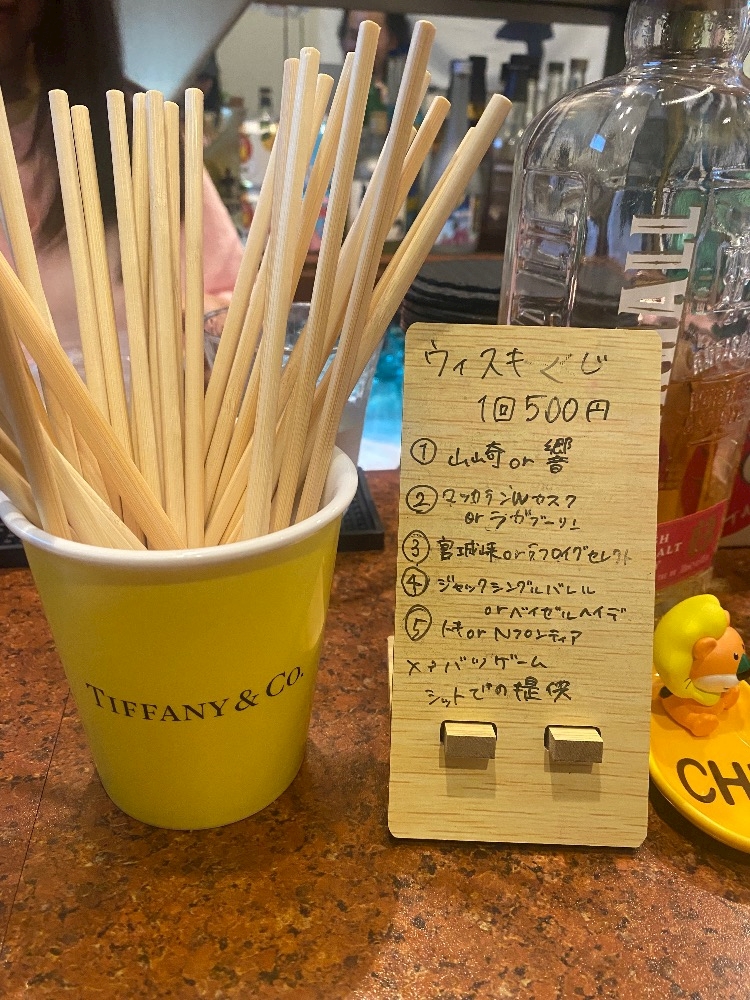 TIFFANY & CO.
ウィスキーくじ
1回500円
① 山崎 or 響
② マッカランWカスク
or ラガブーリン
③ 宮城峡 or ラフロイグセレクト
④ ジャックシングルバレル
or ベイゼルヘイデ
⑤ トキ or Nフロンティア
バツゲーム
ショットでの提供
CH